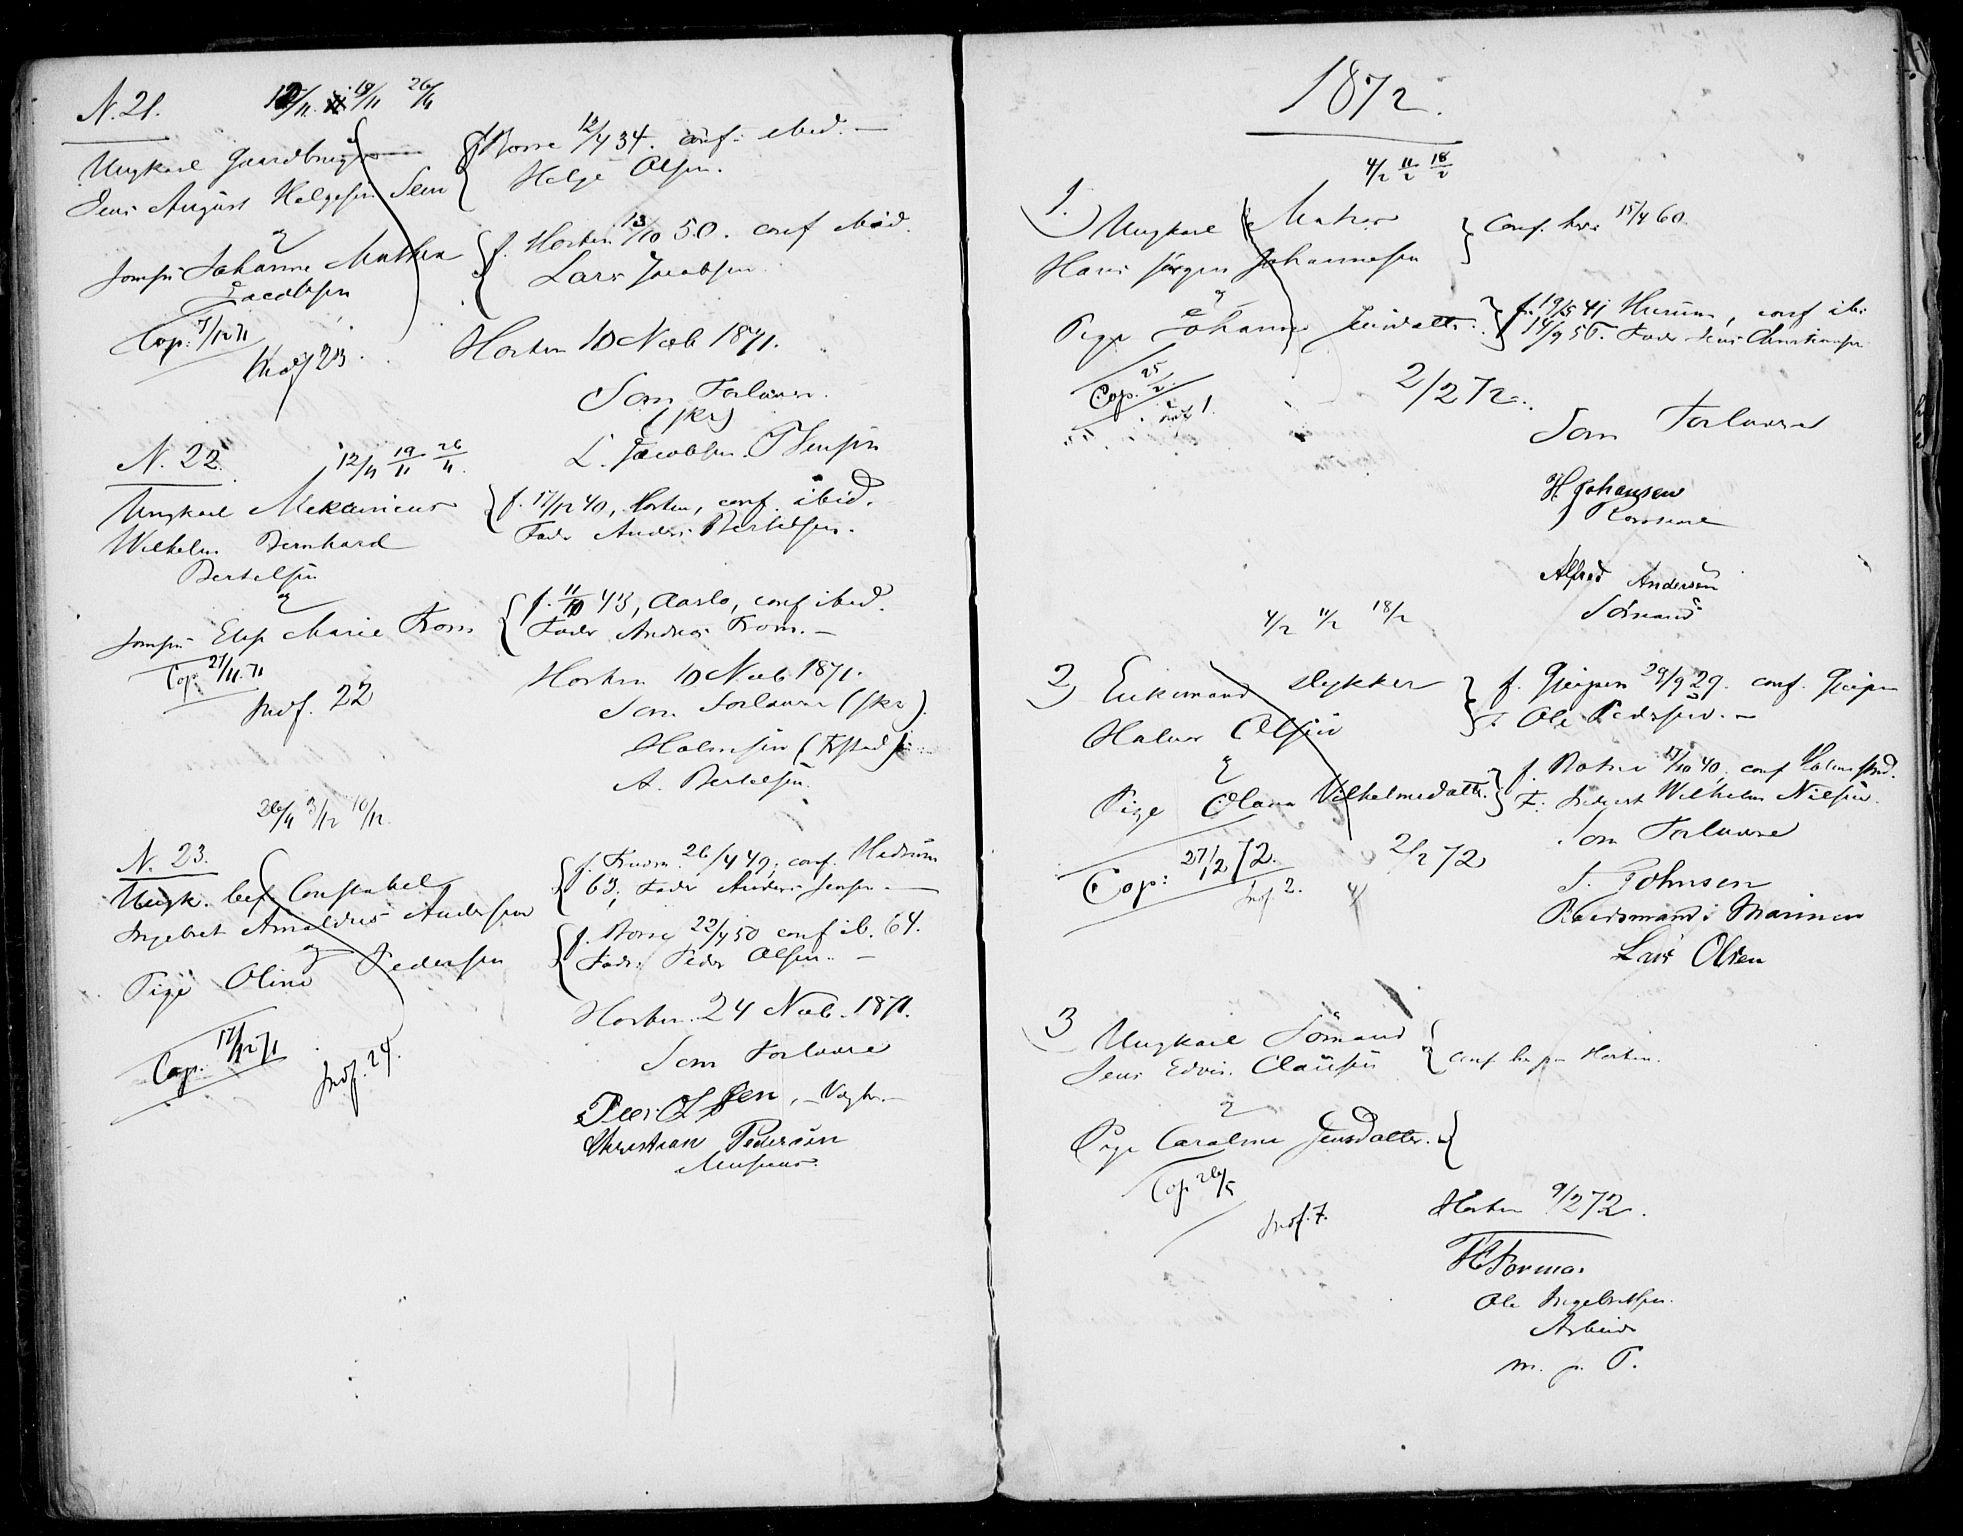 N. 21.
12/11. 19/11 26/11
Ungkarl Gaardbruger
Jens August Helgesen Seen
f. Borre 12/4 34. conf. ibid. —
Helge Olsen.
og
Jomfru Johanne Mathea
Jacobsen
f. Horten 13/10 50. conf ibid.
Lars Jacobsen
Cop. 7/12 71
Indf 23.
Horten 10 Nvb 1871.
Som Forlovere
(skr)
L. Jacobsen. T Jensen
N. 22.
12/11 19/11 26/11.
Ungkarl Mekanicus
Wilhelm Bernhard
Bertelsen
f. 17/12 40, Horten, conf. ibid.
Fader Anders Bertelsen.
og
Jomfru Elise Marie From
f. 11/10 43, Aaslo, conf ibid.
Fader Andreas From. —
Cop. 21/11. 71
Indf. 22
Horten 10 Nvb 1871.
Som Forlovere (skr).
Holmsen
A. Bertelsen.
26/11 3/12 10/12.
N. 23.
Ungk. bef. Constabel
Ingebret Arnoldus Andersen
f. 26/4 49, conf. Hedrum
63, Fader Anders Jensen —
og
Pige Oline Pedersen
f. Borre 22/4 50 conf ib. 64.
Fader Peder Olsen. —
Cop. 17/12 71
Indf. 24.
Horten. 24 Nvb. 1871.
Som Forlovere
Peer Olssen, — Vægter —
Christian Pedersen
1872.
4/2 11/2 18/2
1.) Ungkarl Matros
Hans Jørgen Johannesen
Conf. her 15/4 60.
og
Pige Johanne Jensdatter.
f. 19/5 41 Hurum, conf ib.
14/9 56. Fader Jens Christiansen
Cop. 25/2.
Indf 1.
2/2 72.
Som Forlovere
H. Johansen
Alfred Andersen
Sømand
4/2 11/2 18/2
2) Enkemand Stykker
Halvor Olsen
f. Gjerpen 29/9 29. conf. Gjerpen
F. Ole Pedersen. —
og
Pige Olava Vilhelmsdatter.
f. Botne 17/10 40, conf Holmestrand.
F. Wilhelm Nilsen.
Cop: 27/2 72.
Indf. 2.
2/2 72
Som Forlovere
J. Johnsen
Kvartermand i Marinen
Lars Olsen
3 Ungkarl Sømand
Jens Edvin Clausen
conf. her paa Horten.
og
Pige Caroline Jensdatter.
Cop 26/5
Indf. 7.
Horten 9/2 72.
Ole Ingebretsen.
Arbeider
m. p. P.